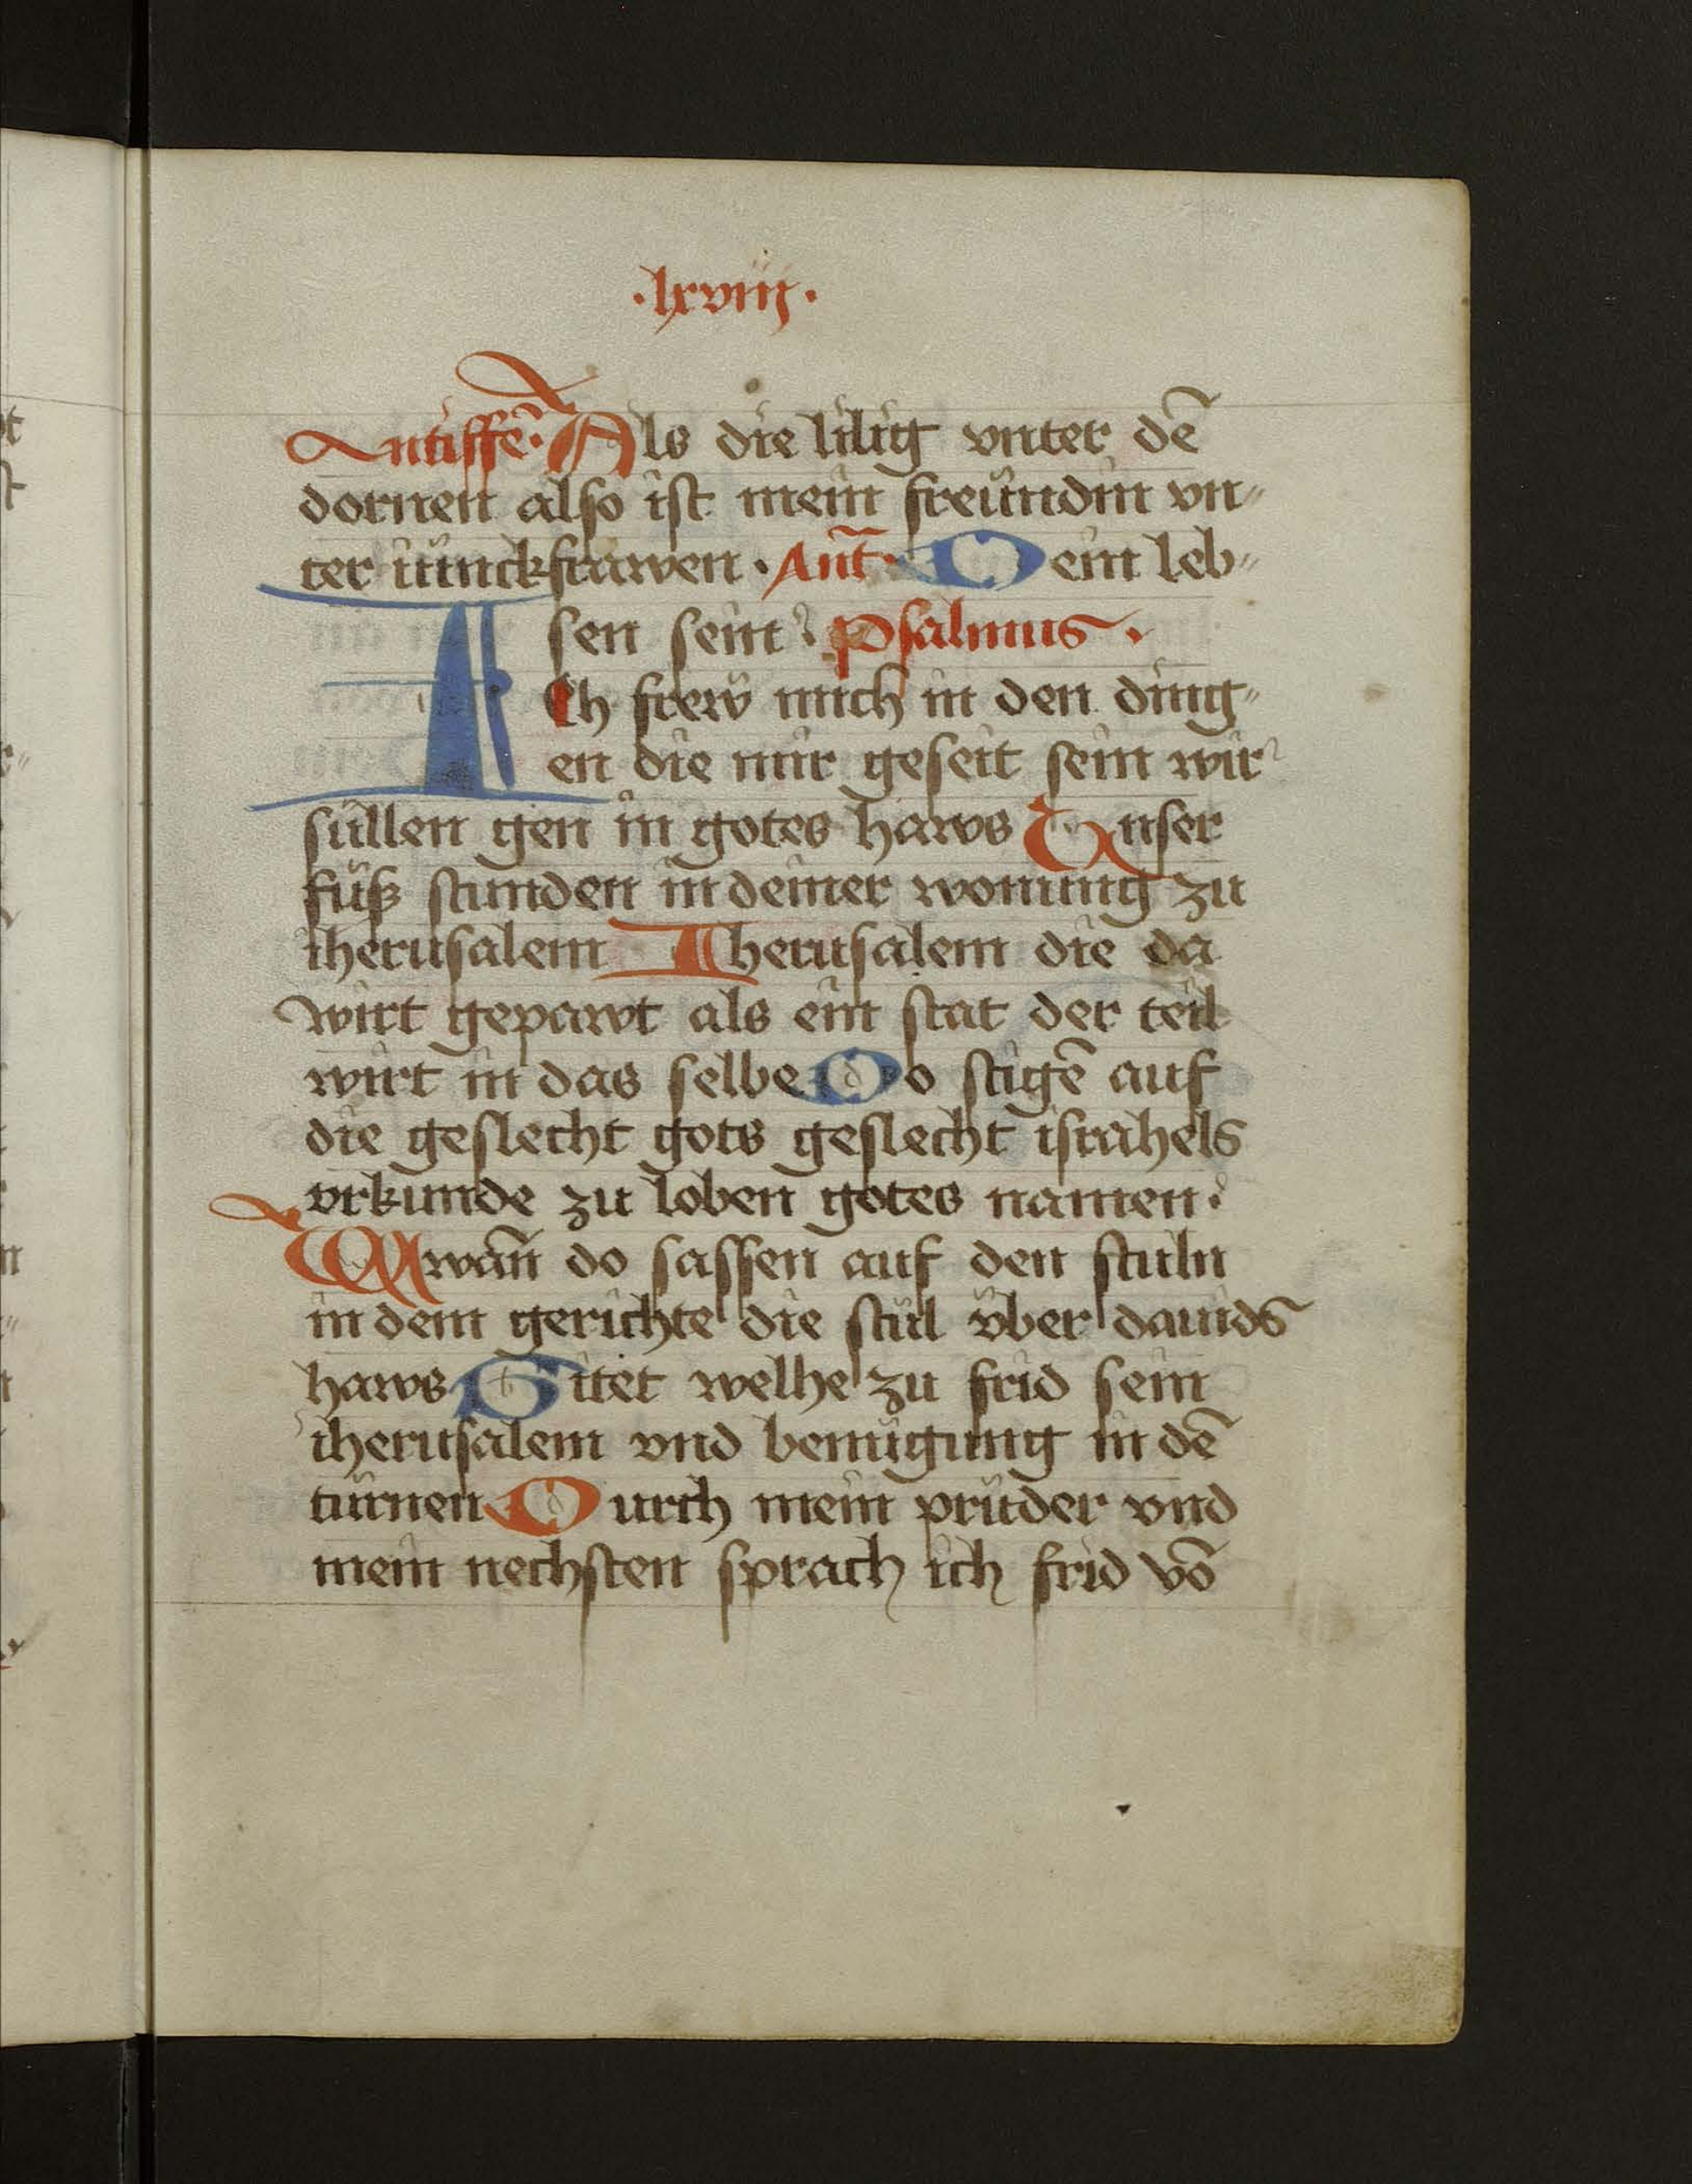 ·lxviij·
Antiffē· Als die lilig vnter dē
dornen also ist mein freündin vn„
ter iünckfrawen · Ant̄· Dein leb„
sen sein Psalmus ·
Ich frew mich in den ding„
en die mir geseit sein wir
süllen gen in gotes haws Vnser
füß stunden in deiner wonung zu
iherusalem Iherusalem die da
wirt gepawt als ein stat der teil
wirt in das selbe Do stigē auf
die geslecht gots geslecht israhels
vrkunde zu loben gotes namen·
Wwañ do sassen auf den stuln
in dem gerichte die stül v̈ber dauids
haws Bitet welhe zu frid sein
iherusalem vnd benügung in dē
türnen Durch mein prüder vnd
mein nechsten sprach ich frid vō